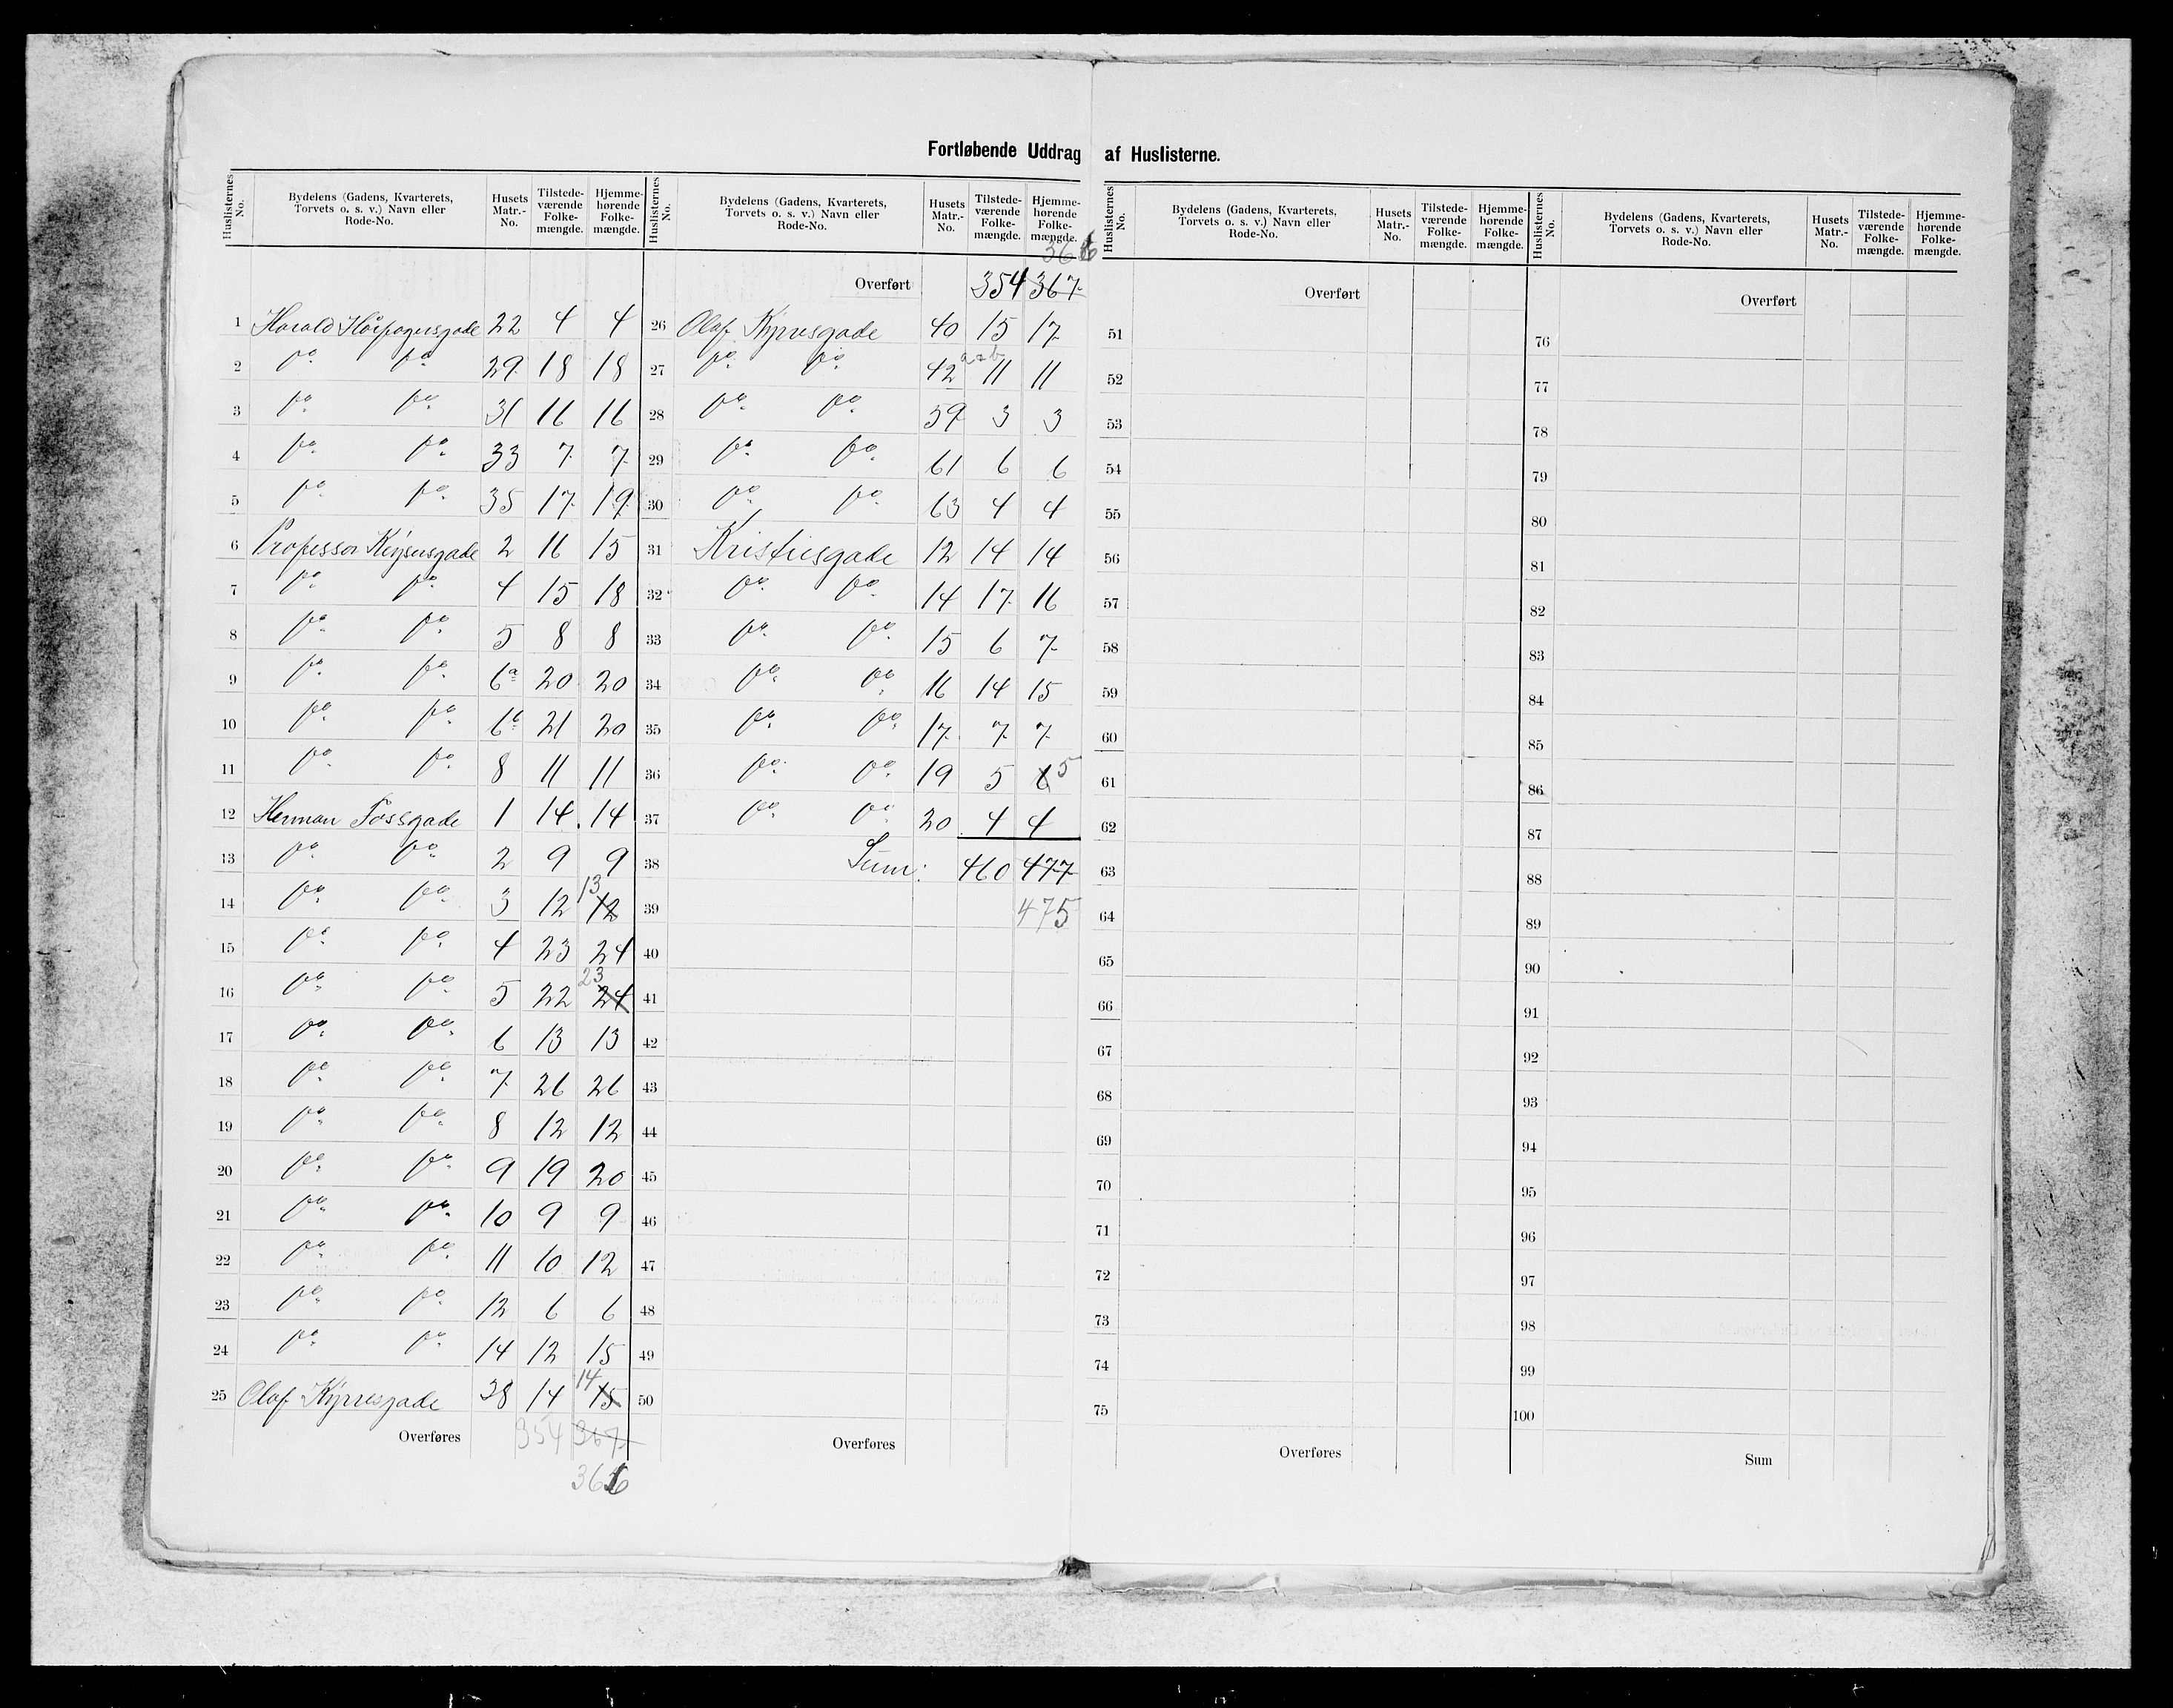 Fortløbende Uddrag af Huslisterne.
Huslisternes No. Bydelens (Gadens, Kvarterets, Torvets o. s. v.) Navn eller Rode-No. Husets Matr.-No. Tilstede-værende Folke-mængde. Hjemme-hørende Folke-mængde.
1 Harald Hårfagersgade 22 4 4
2 do do 29 18 18
3 do do 31 16 16
4 do do 33 7 7
5 do do 35 17 19
6 Professor Keysersgade 2 16 15
7 do do 4 15 18
8 do do 5 8 8
9 do do 6a 20 20
10 do do 6b 21 20
11 do do 8 11 11
12 Herman Fossgade 1 14 14
13 do do 2 9 9
14 do do 3 12 12 13
15 do do 4 23 24
16 do do 5 22 24 23
17 do do 6 13 13
18 do do 7 26 26
19 do do 8 12 12
20 do do 9 19 20
21 do do 10 9 9
22 do do 11 10 12
23 do do 12 6 6
24 do do 14 12 15
25 Olaf Kyrresgade 38 14 15 14
Overføres 354 367
366
Huslisternes No. Bydelens (Gadens, Kvarterets, Torvets o. s. v.) Navn eller Rode-No. Husets Matr.-No. Tilstede-værende Folke-mængde. Hjemme-hørende Folke-mængde.
366
Overført 354 367
26 Olaf Kyrresgade 40 15 17
27 do do 42 a=b 11 11
28 do do 59 3 3
29 do do 61 6 6
30 do do 63 4 4
31 Kristiesgade 12 14 14
32 do do 14 17 16
33 do do 15 6 7
34 do do 16 14 15
35 do do 17 7 7
36 do do 19 5 6 5
37 do do 20 4 4
38 Sum: 460 477
39 475
40
41
42
43
44
45
46
47
48
49
50
Overføres
Huslisternes No. Bydelens (Gadens, Kvarterets, Torvets o. s. v.) Navn eller Rode-No. Husets Matr.-No. Tilstede-værende Folke-mængde. Hjemme-hørende Folke-mængde.
Overført
51
52
53
54
55
56
57
58
59
60
61
62
63
64
65
66
67
68
69
70
71
72
73
74
75
Overføres
Huslisternes No. Bydelens (Gadens, Kvarterets, Torvets o. s. v.) Navn eller Rode-No. Husets Matr.-No. Tilstede-værende Folke-mængde. Hjemme-hørende Folke-mængde.
Overført
76
77
78
79
80
81
82
83
84
85
86
87
88
89
90
91
92
93
94
95
96
97
98
99
100
Sum